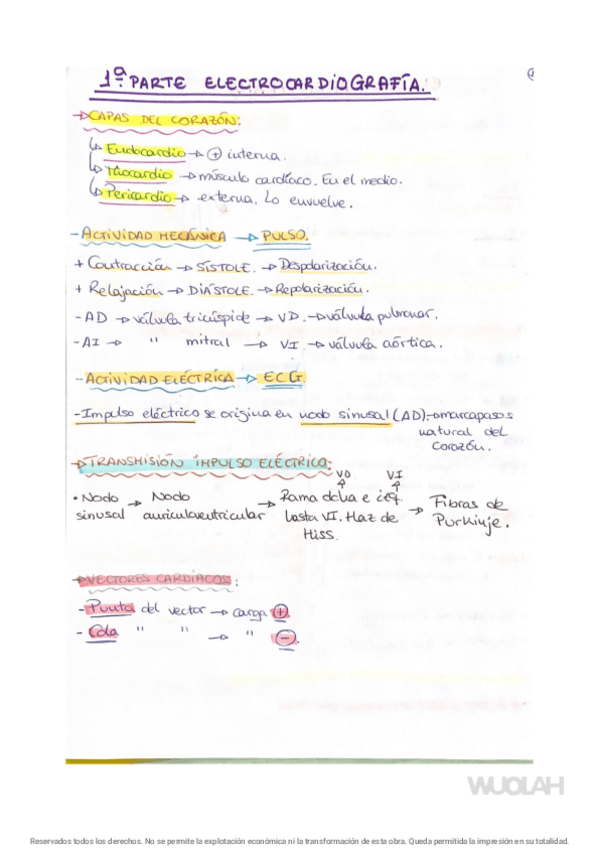 1ª PARTE ELECTROCARDIOGRAFÍA.
→CAPAS DEL CORAZÓN:
↳ Endocardio → ⊕ interna.
↳ Miocardio → músculo cardíaco. En el medio.
↳ Pericardio → externa. Lo envuelve.
- ACTIVIDAD MECÁNICA → PULSO.
+ Contracción → SÍSTOLE. → Despolarización.
+ Relajación → DIÁSTOLE. → Repolarización.
- AD → válvula tricúspide → VD. → válvula pulmonar.
- AI → " mitral → VI. → válvula aórtica.
- ACTIVIDAD ELÉCTRICA → ECG.
- Impulso eléctrico se origina en nodo sinusal (AD)→marcapasos
natural del
corazón.
→TRANSMISIÓN IMPULSO ELÉCTRICO:
VD VI
• Nodo → Nodo → Rama dcha e izq. → Fibras de
sinusal auriculoventricular hasta VI. Haz de Purkinje.
Hiss.
→VECTORES CARDÍACOS:
- Punta del vector → carga ⊕
- Cola " " → " ⊖.
WUOLAH
Reservados todos los derechos. No se permite la explotación económica ni la transformación de esta obra. Queda permitida la impresión en su totalidad.